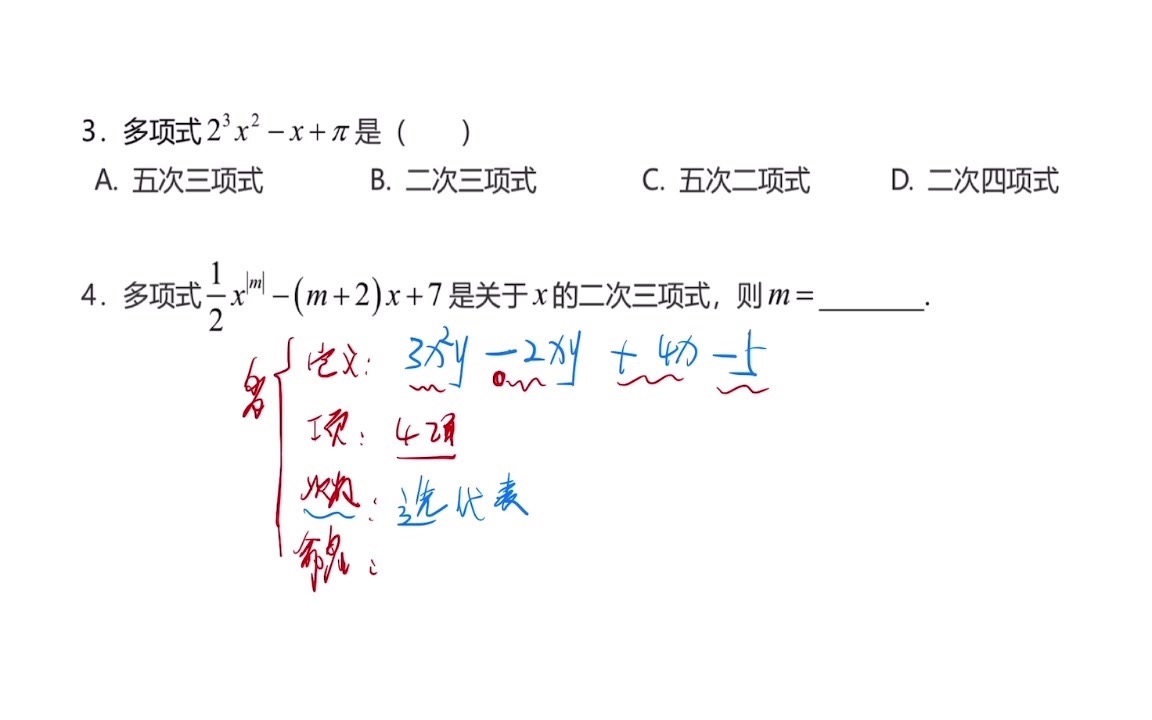 3. 多项式 2³x² − x + π 是（　　）
A. 五次三项式　B. 二次三项式　C. 五次二项式　D. 二次四项式
4. 多项式 1/2 x^|m| − (m + 2)x + 7 是关于 x 的二次三项式，则 m = ________.
多 { 定义: 3x²y − 2xy + 4x − 5
项: 4项
次数: 选代表
命名: